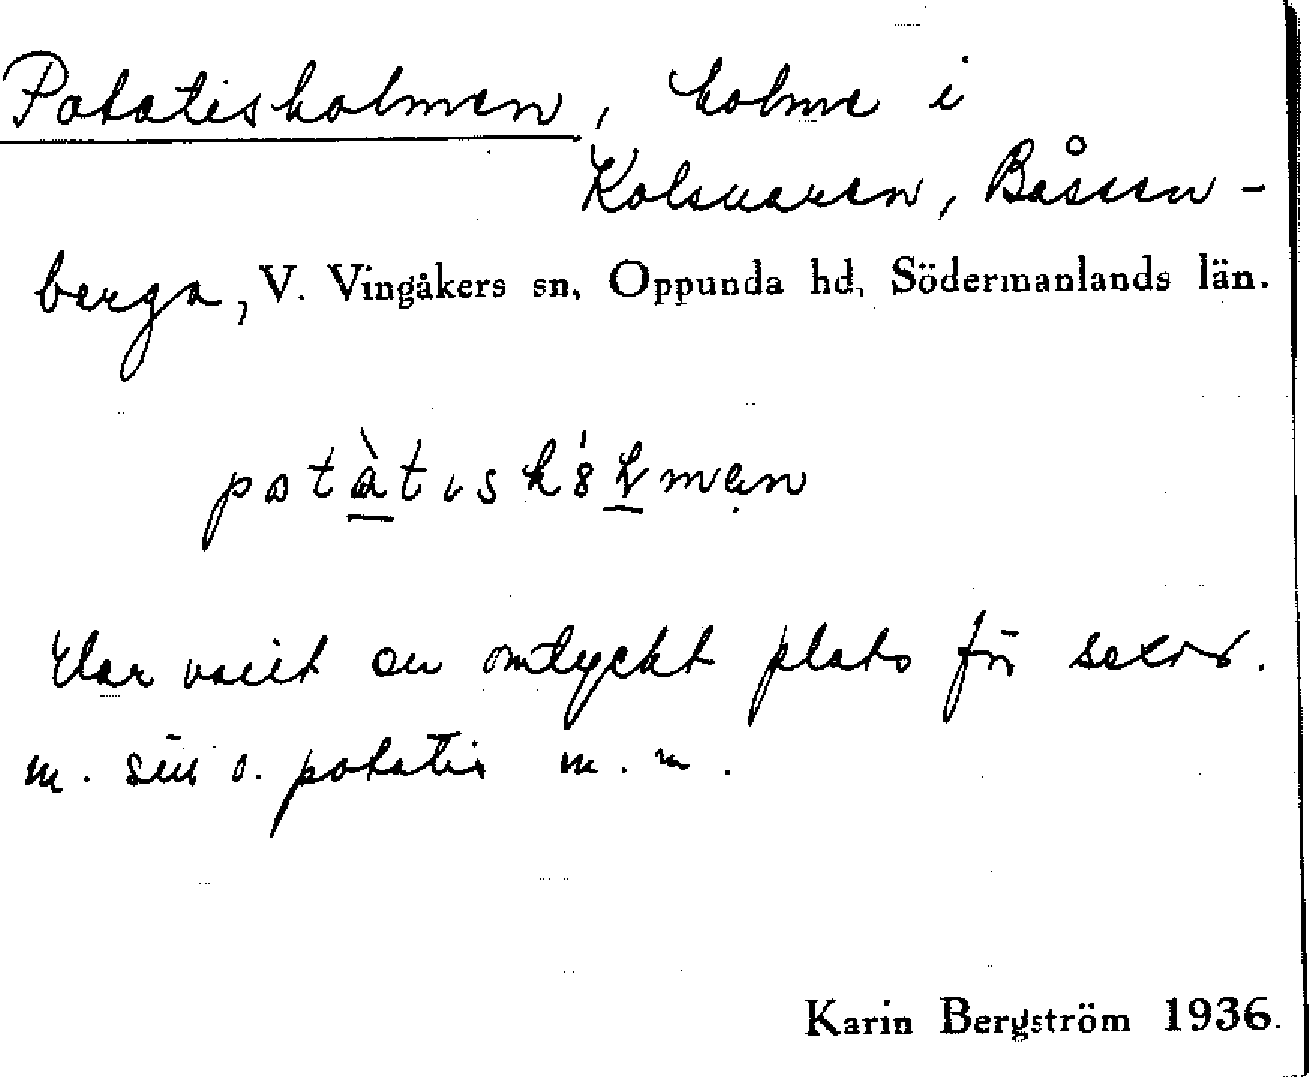 Potatisholmen, holme i
Kolsnaren, Båsen-
berga, V. Vingåkers sn, Oppunda hd, Södermanlands län.
potàtıskȯ́lmən
Har varit en omtyckt plats för sexor.
m. sill o. potatis m. m.
Karin Bergström 1936.